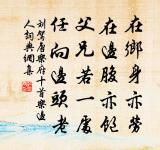 在鄉身亦勞
在邊腹亦飽
父兄若一處
任向邊頭老
劉駕唐樂府十首樂邊
人詞典網集